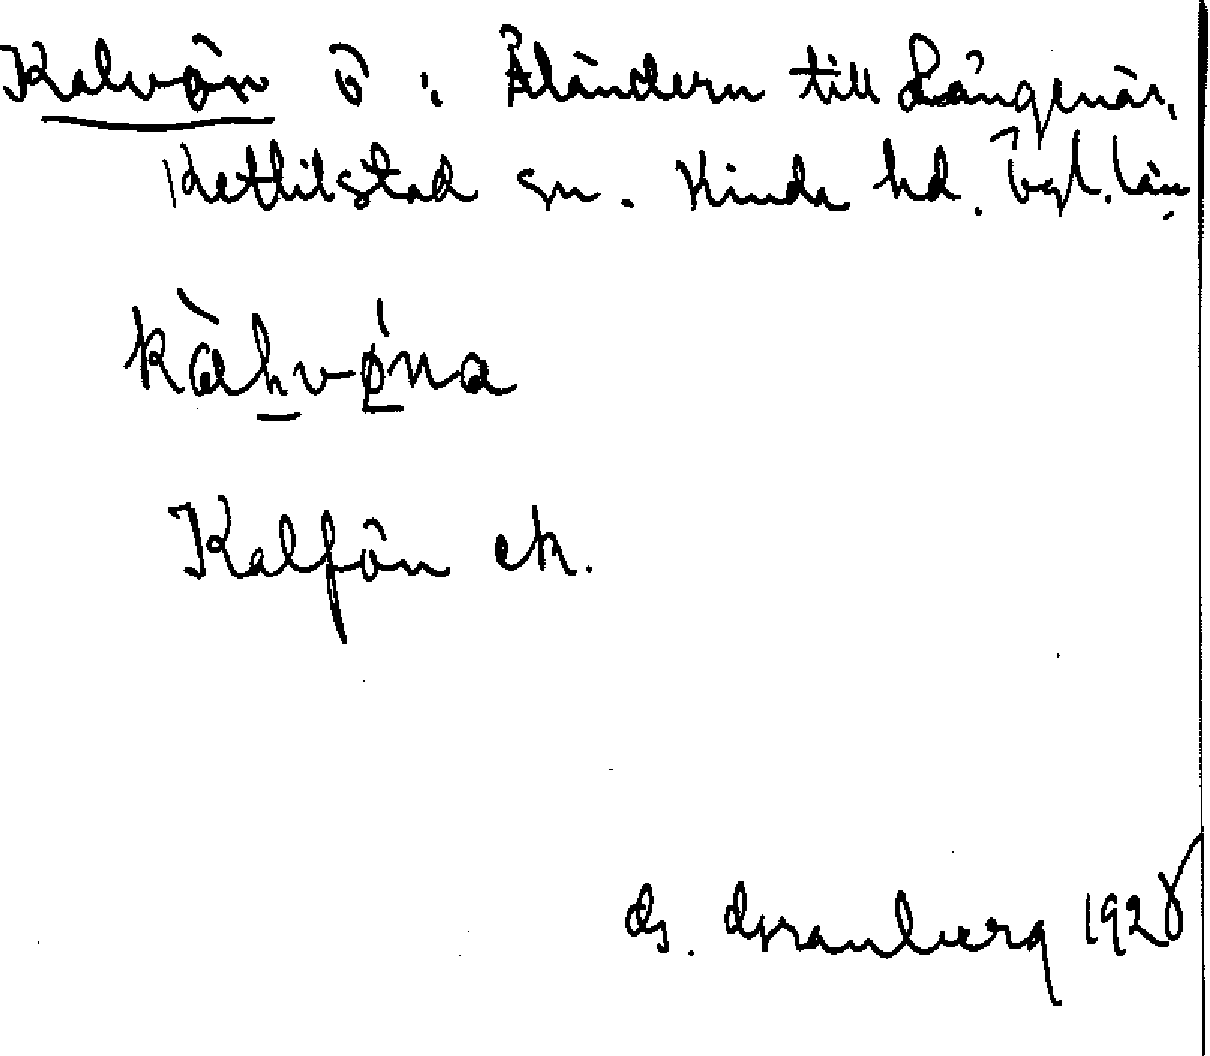 Kalvön ö i Åländern till Långenäs,
Kettilstad sn. Kinda hd. Ögl. län
kàhvǿna
Kalfön ek.
G. Granberg 1928